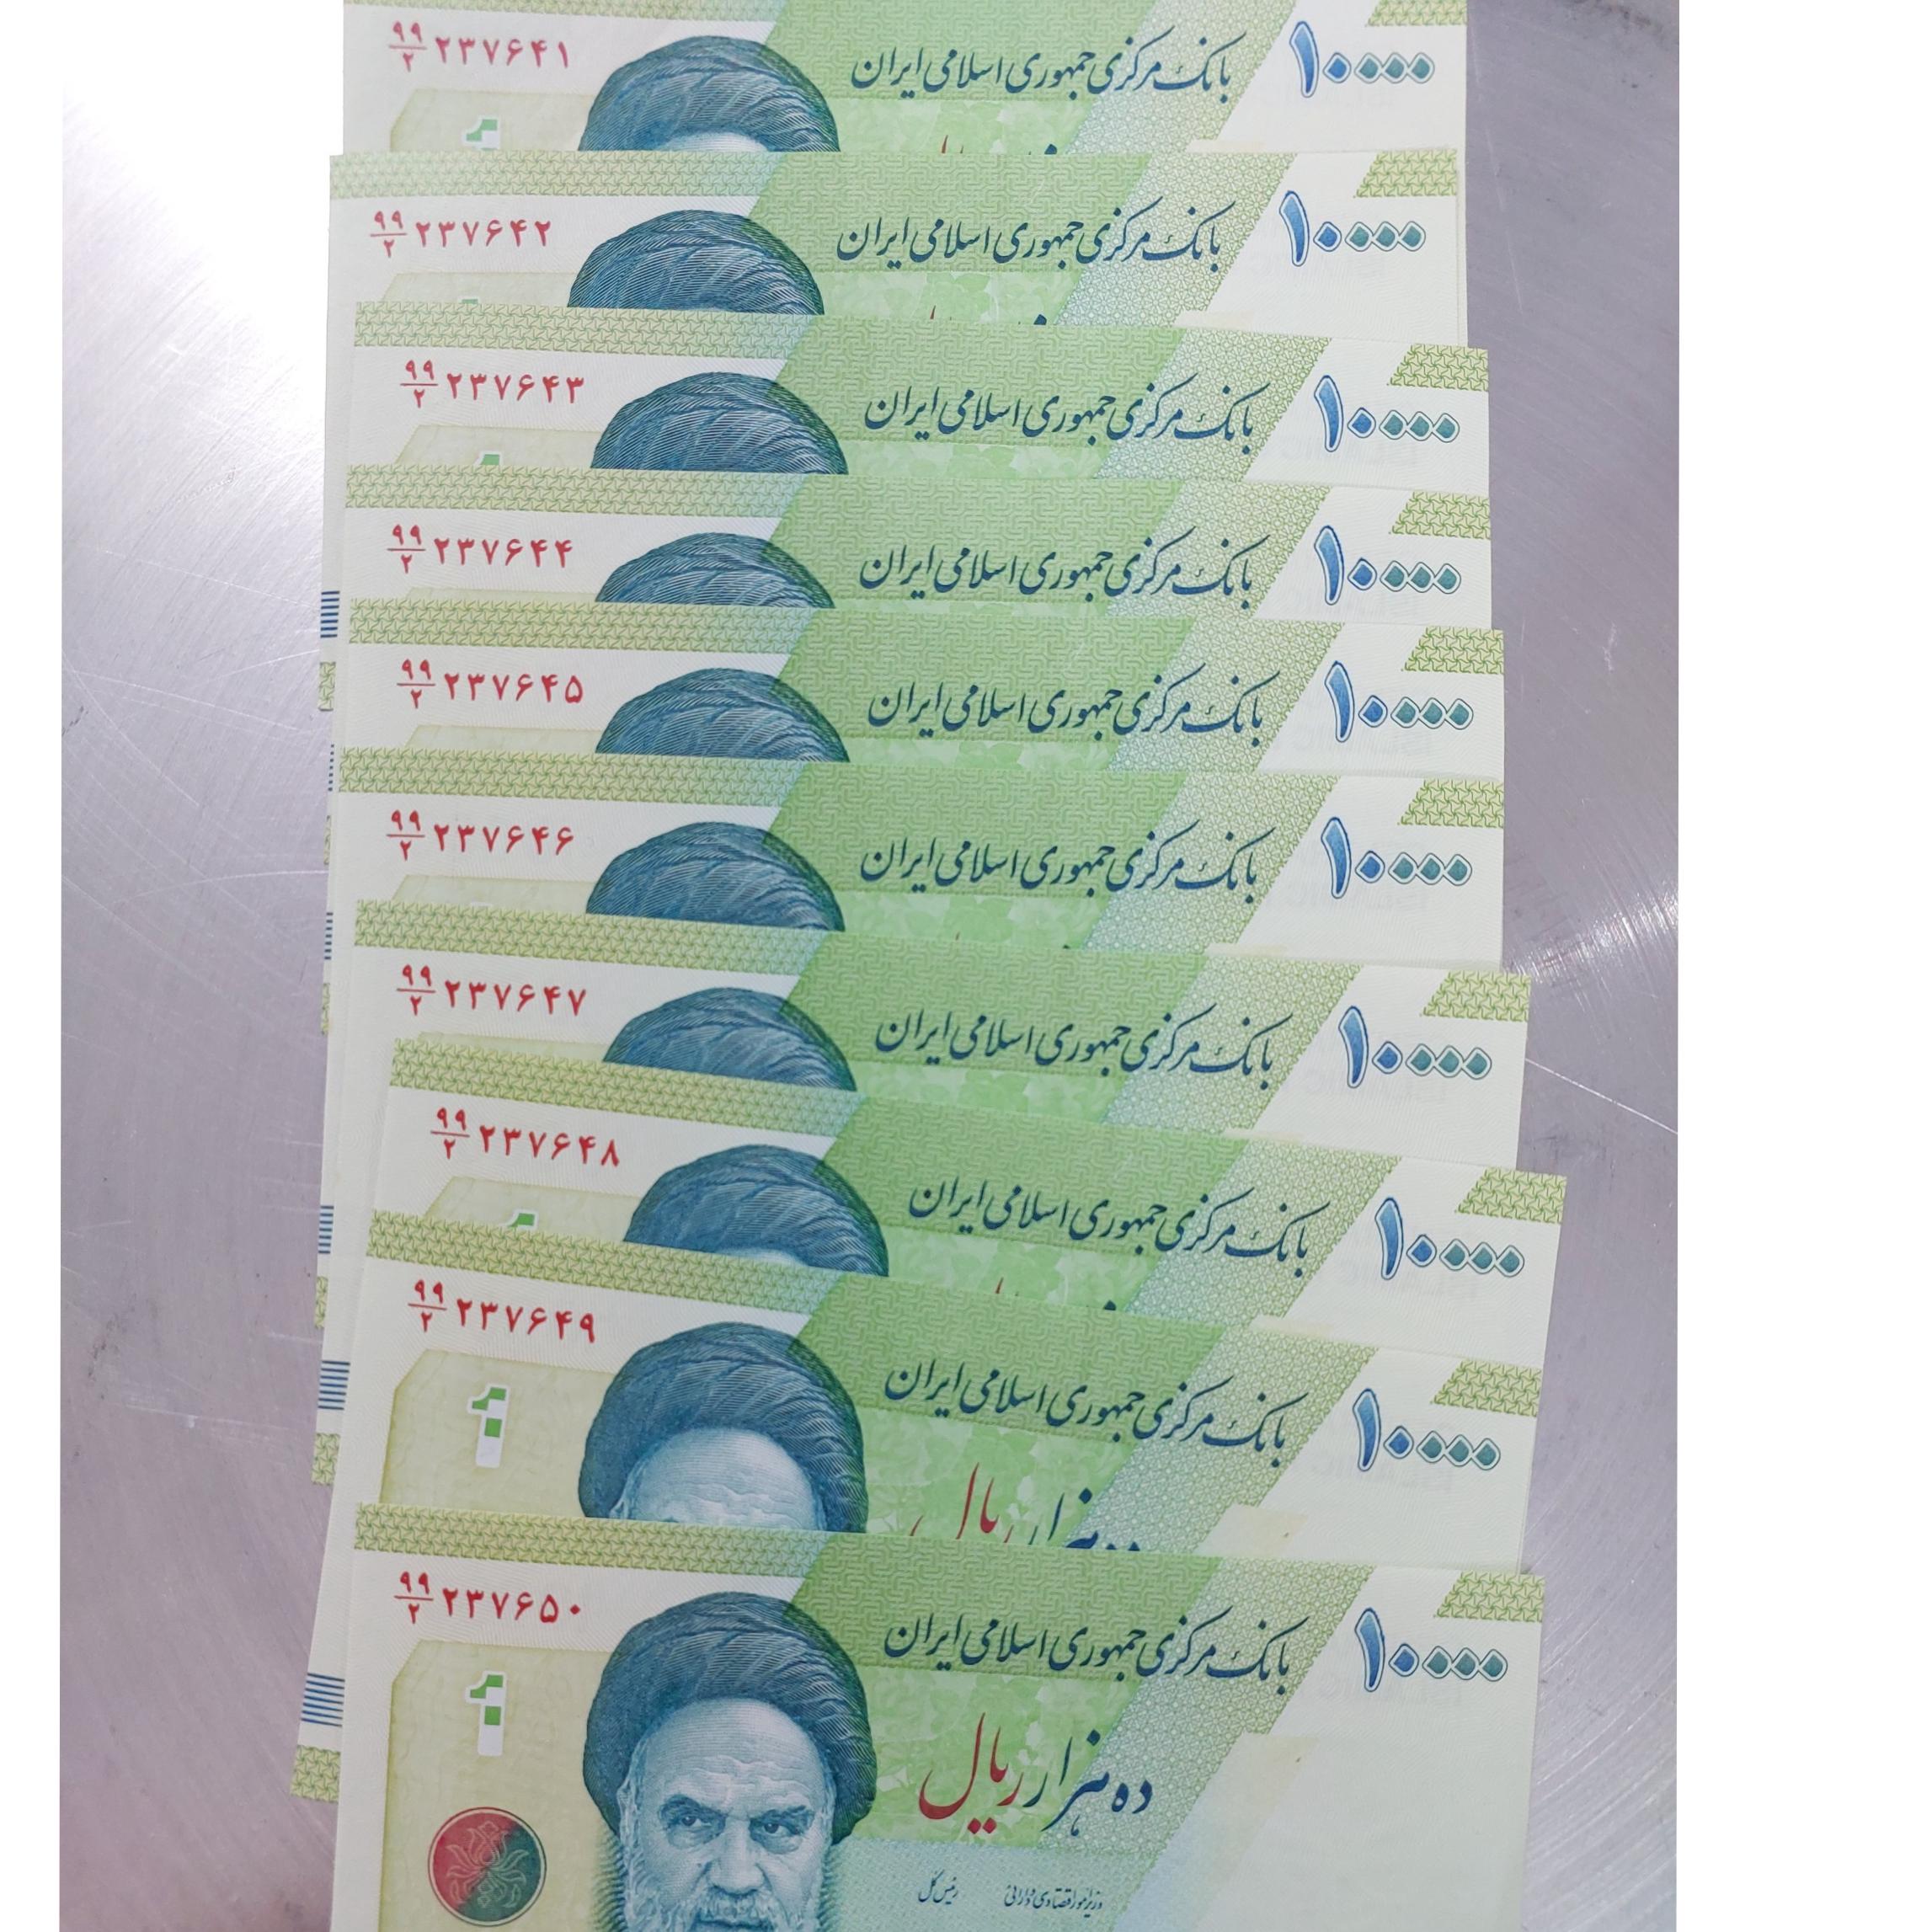 ۹۹/۲ ۲۳۷۶۴۱ بانک مرکزی جمهوری اسلامی ایران ۱۰۰۰۰
۹۹/۲ ۲۳۷۶۴۲ بانک مرکزی جمهوری اسلامی ایران ۱۰۰۰۰
۹۹/۲ ۲۳۷۶۴۳ بانک مرکزی جمهوری اسلامی ایران ۱۰۰۰۰
۹۹/۲ ۲۳۷۶۴۴ بانک مرکزی جمهوری اسلامی ایران ۱۰۰۰۰
۹۹/۲ ۲۳۷۶۴۵ بانک مرکزی جمهوری اسلامی ایران ۱۰۰۰۰
۹۹/۲ ۲۳۷۶۴۶ بانک مرکزی جمهوری اسلامی ایران ۱۰۰۰۰
۹۹/۲ ۲۳۷۶۴۷ بانک مرکزی جمهوری اسلامی ایران ۱۰۰۰۰
۹۹/۲ ۲۳۷۶۴۸ بانک مرکزی جمهوری اسلامی ایران ۱۰۰۰۰
۹۹/۲ ۲۳۷۶۴۹ بانک مرکزی جمهوری اسلامی ایران ۱۰۰۰۰
1
ده هزار ریال
۹۹/۲ ۲۳۷۶۵۰ بانک مرکزی جمهوری اسلامی ایران ۱۰۰۰۰
1
ده هزار ریال
وزیر امور اقتصادی و دارائی رئیس کل